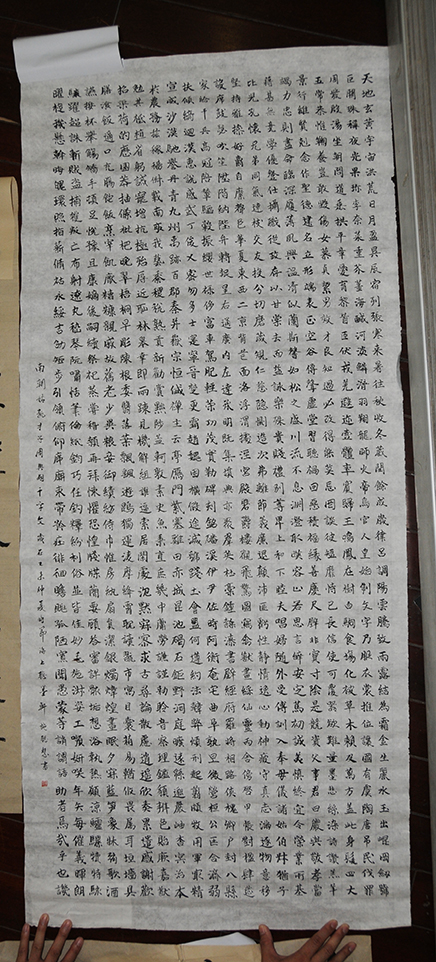 天地玄黃宇宙洪荒日月盈昃辰宿列張寒來暑往秋收冬藏閏餘成歲律呂調陽雲騰致雨露結為霜金生麗水玉出崐岡劍號
巨闕珠稱夜光果珍李柰菜重芥薑海鹹河淡鱗潛羽翔龍師火帝鳥官人皇始制文字乃服衣裳推位讓國有虞陶唐弔民伐罪
周發殷湯坐朝問道垂拱平章愛育黎首臣伏戎羌遐邇壹體率賓歸王鳴鳳在樹白駒食場化被草木賴及萬方蓋此身髮四大
五常恭惟鞠養豈敢毀傷女慕貞絜男效才良知過必改得能莫忘罔談彼短靡恃己長信使可覆器欲難量墨悲絲染詩讚羔羊
景行維賢剋念作聖德建名立形端表正空谷傳聲虛堂習聽禍因惡積福緣善慶尺璧非寶寸陰是競資父事君曰嚴與敬孝當
竭力忠則盡命臨深履薄夙興溫凊似蘭斯馨如松之盛川流不息淵澄取映容止若思言辭安定篤初誠美慎終宜令榮業所基
籍甚無竟學優登仕攝職從政存以甘棠去而益詠樂殊貴賤禮別尊卑上和下睦夫唱婦隨外受傅訓入奉母儀諸姑伯叔猶子
比兒孔懷兄弟同氣連枝交友投分切磨箴規仁慈隱惻造次弗離節義廉退顛沛匪虧性靜情逸心動神疲守真志滿逐物意移
堅持雅操好爵自縻都邑華夏東西二京背芒面洛浮渭據涇宮殿盤鬱樓觀飛驚圖寫禽獸畫彩仙靈丙舍傍啟甲帳對楹肆筵
設席鼓瑟吹笙陞階納陛弁轉疑星右通廣內左達承明既集墳典亦聚群英杜稾鍾隸漆書壁經府羅將相路俠槐卿戶封八縣
家給千兵高冠陪輦驅轂振纓世祿侈富車駕肥輕策功茂實勒碑刻銘磻溪伊尹佐時阿衡奄宅曲阜微旦孰營桓公匡合濟弱
扶傾綺迴漢惠說感武丁俊乂密勿多士寔寧晉楚更霸趙魏困橫假途滅虢踐土會盟何遵約法韓弊煩刑起翦頗牧用軍最精
宣威沙漠馳譽丹青九州禹跡百郡秦并嶽宗恆岱禪主云亭雁門紫塞雞田赤城昆池碣石鉅野洞庭曠遠緜邈巖岫杳冥治本
於農務茲稼穡俶載南畝我藝黍稷稅熟貢新勸賞黜陟孟軻敦素史魚秉直庶幾中庸勞謙謹敕聆音察理鑑貌辨色貽厥嘉猷
勉其祗植省躬譏誡寵增抗極殆辱近恥林皋幸即兩疏見機解組誰逼索居閒處沉默寂寥求古尋論散慮逍遙欣奏累遣慼謝歡
招渠荷的歷園莽抽條枇杷晚翠梧桐早凋陳根委翳落葉飄颻遊鵾獨運凌摩絳霄耽讀翫市寓目囊箱易輶攸畏屬耳垣牆具
膳餐飯適口充腸飽飫烹宰飢厭糟糠親戚故舊老少異糧妾御績紡侍巾帷房紈扇圓潔銀燭煒煌晝眠夕寐藍筍象床弦歌酒
讌接杯舉觴矯手頓足悅豫且康嫡後嗣續祭祀蒸嘗稽顙再拜悚懼恐惶牋牒簡要顧答審詳骸垢想浴執熱願涼驢騾犢特駭
躍超驤誅斬賊盜捕獲叛亡布射遼丸嵇琴阮嘯恬筆倫紙鈞巧任釣釋紛利俗並皆佳妙毛施淑姿工顰妍笑年矢每催羲暉朗
曜璇璣懸斡晦魄環照指薪修祜永綏吉劭矩步引領俯仰廊廟束帶矜莊徘徊瞻眺孤陋寡聞愚蒙等誚謂語助者焉哉乎也
南朝才子周興嗣千字文歲在